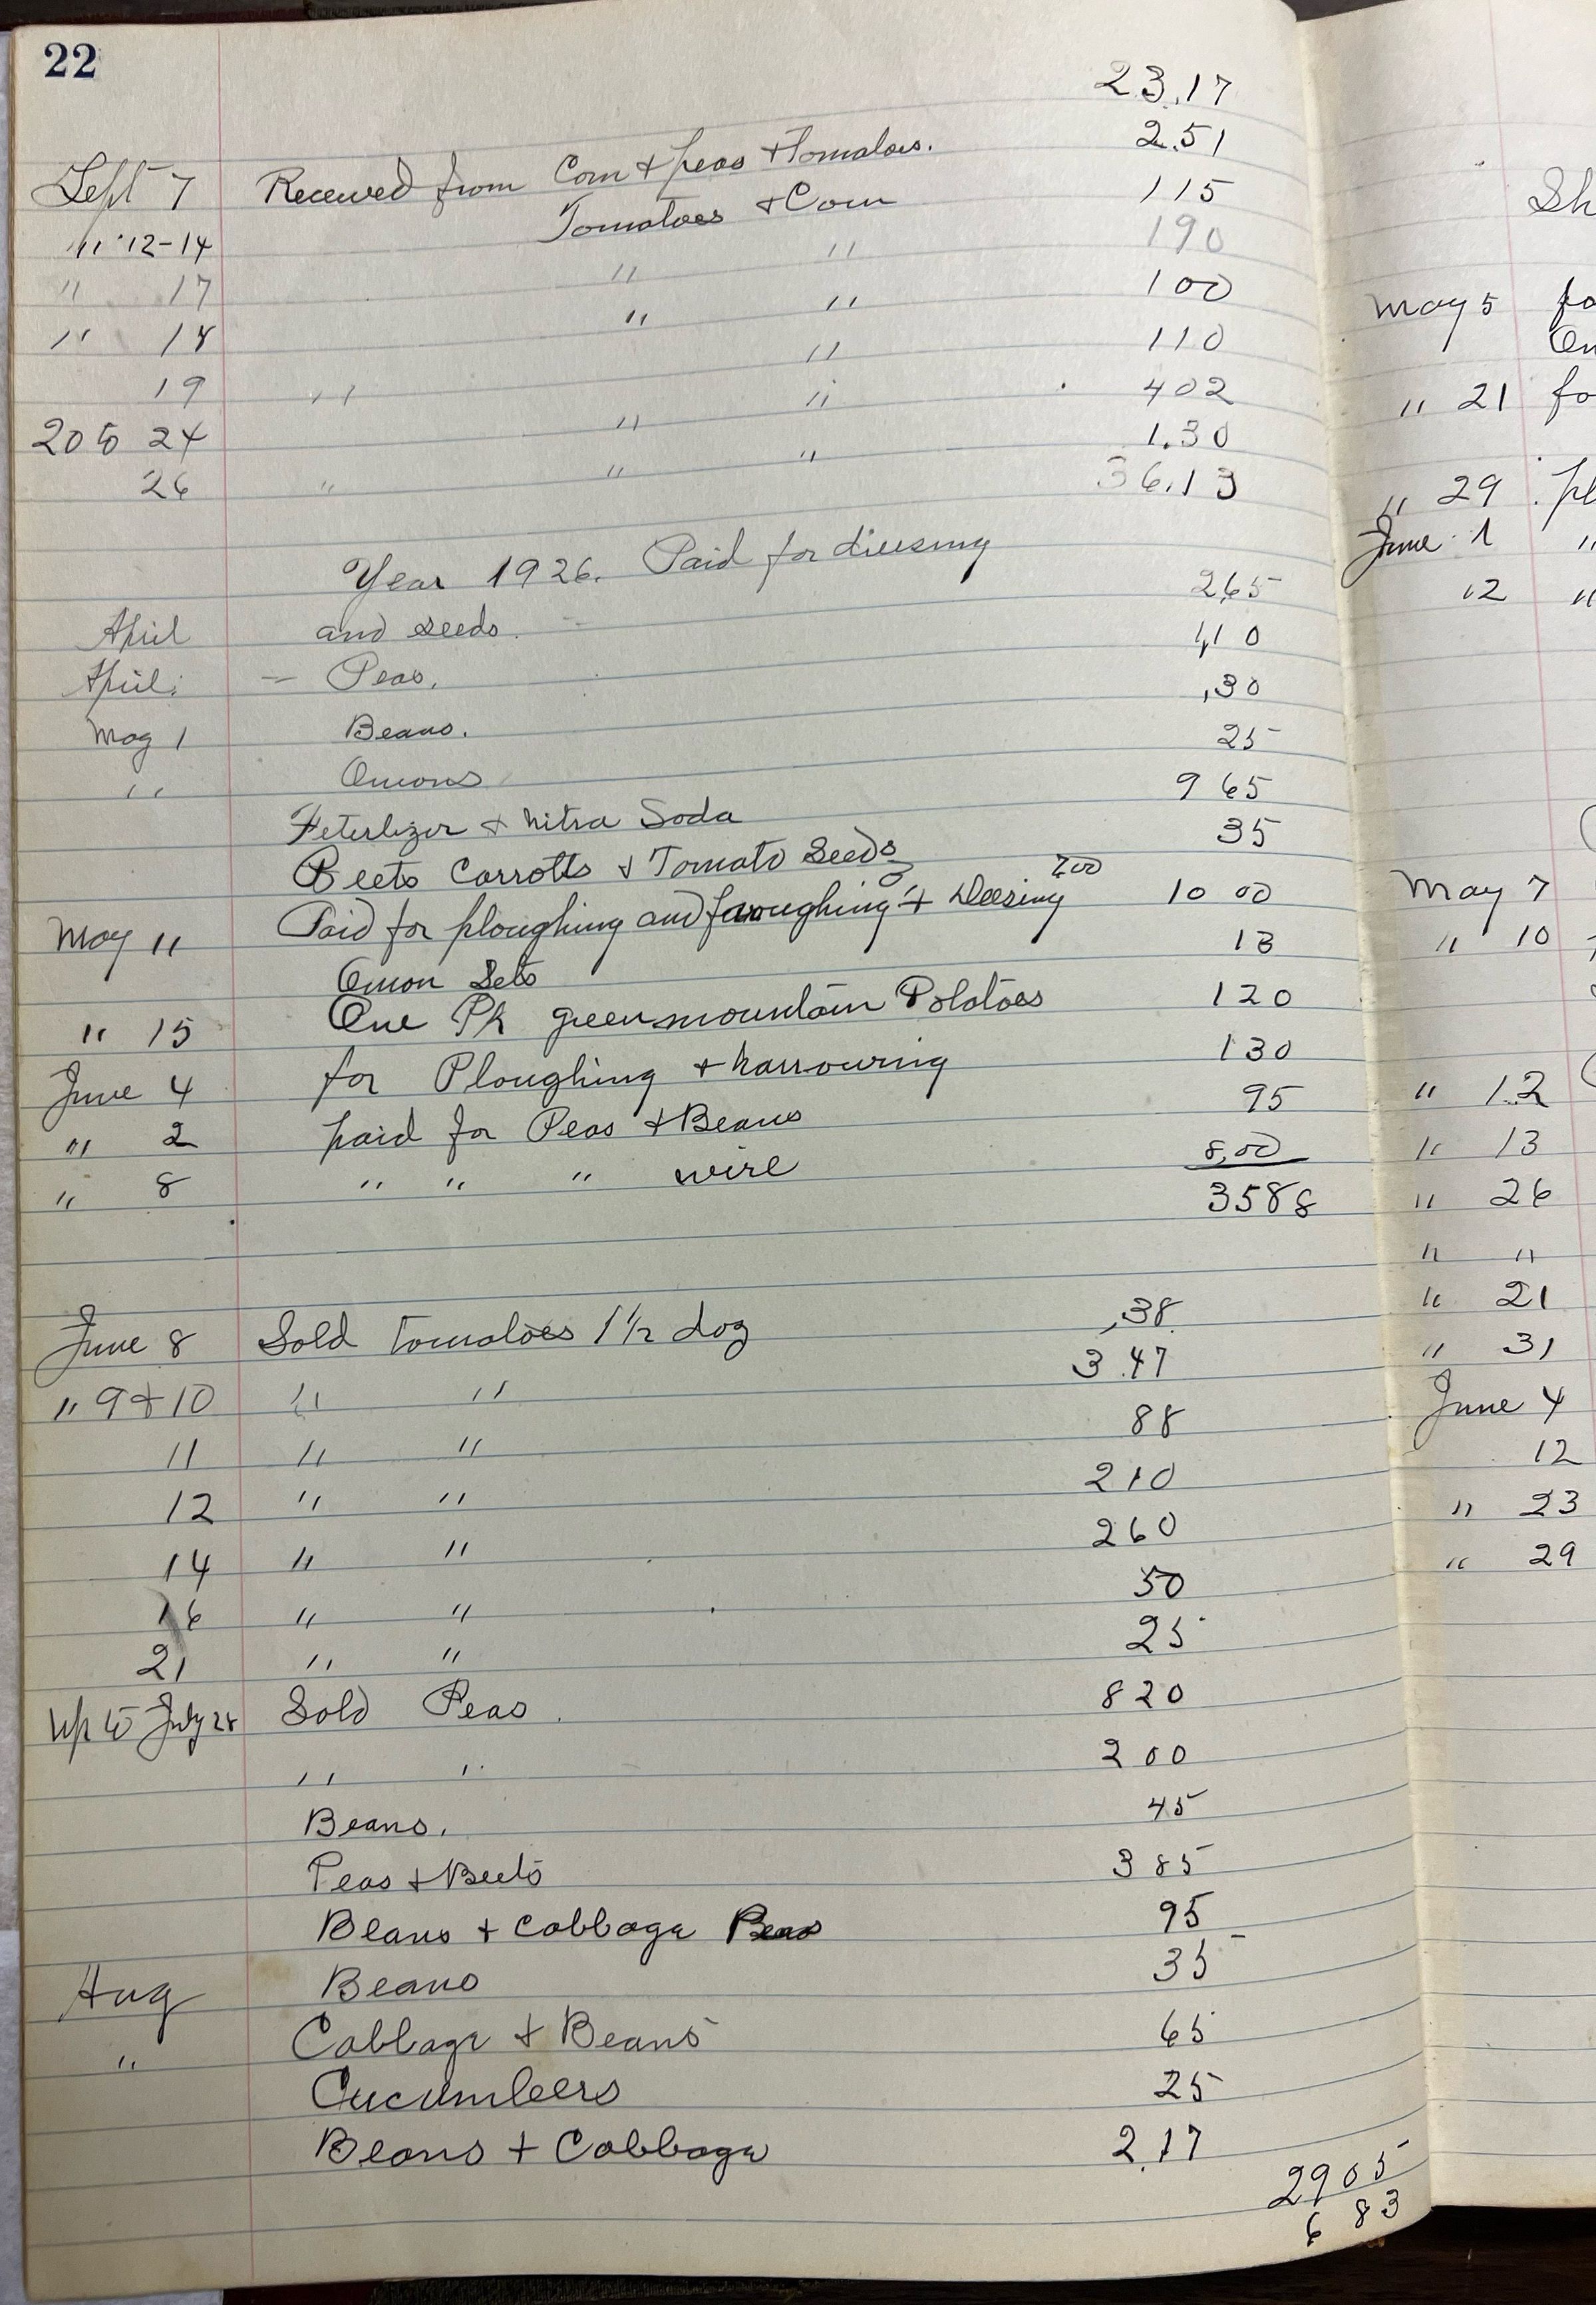 22
23.17
Sept 7 Received from Corn + peas + tomatoes. 2.51
" 12-14 Tomatoes + Corn 115
" 17 " " 190
" 18 " " 100
19 " " 110
20 to 24 " " 402
26 " " " 1.30
36.13
Year 1926. Paid for dressing
April and seeds. 265
April. - Peas. 1,10
May 1 Beans. ,30
" Onions 25
Feterlizer + nitra Soda 9 65
Beets Carrotts + Tomato Seeds 35
May 11 Paid for ploughing and farroughing + dressing 700 10 00
Onion Sets 13
" 15 One Pk green mountain Potatoes 120
June 4 for Ploughing + harrowring 130
" 2 paid for Peas + Beans 95
" 8 " " " wire 8,00
3588
June 8 Sold tomatoes 1 1/2 doz ,38
" 9 + 10 " " 3.47
11 " " 88
12 " " 210
14 " " 260
16 " " 50
21 " " 25
Up to July 28 Sold Peas. 820
" " 200
Beans. 45
Peas + Beets 385
Beans + Cabbage Peas 95
Aug Beans 35
" Cabbage + Beans 65
Cucumbers 25
Beans + Cabbage 2.17
2905
6 83
Sh
May 5 fo
On
" 21 fo
" 29 pl
June 1 "
12 "
May 7
" 10
" 12
" 13
" 26
" "
" 21
" 31
June 4
12
" 23
" 29